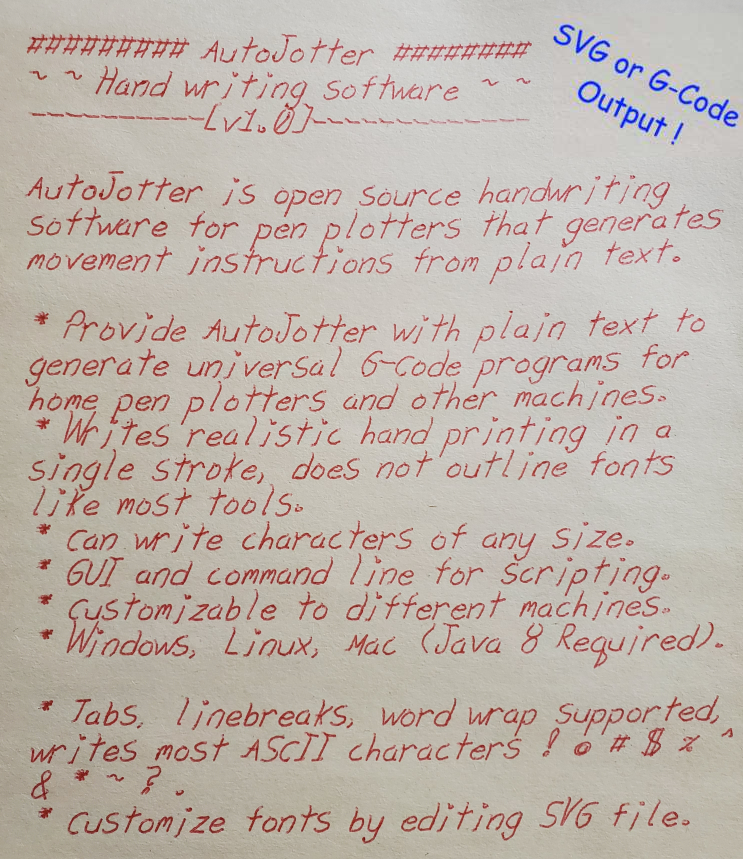 ######### AutoJotter ########
~ ~ Hand writing software ~ ~
----------[v1.0]-------------
SVG or G-Code
Output !
AutoJotter is open source handwriting
software for pen plotters that generates
movement instructions from plain text.
* Provide AutoJotter with plain text to
generate universal G-Code programs for
home pen plotters and other machines.
* Writes realistic hand printing in a
single stroke, does not outline fonts
like most tools.
* Can write characters of any size.
* GUI and command line for scripting.
* Customizable to different machines.
* Windows, Linux, Mac (Java 8 Required).
* Tabs, linebreaks, word wrap supported,
writes most ASCII characters ! @ # $ % ^
& * ~ ? .
* Customize fonts by editing SVG file.